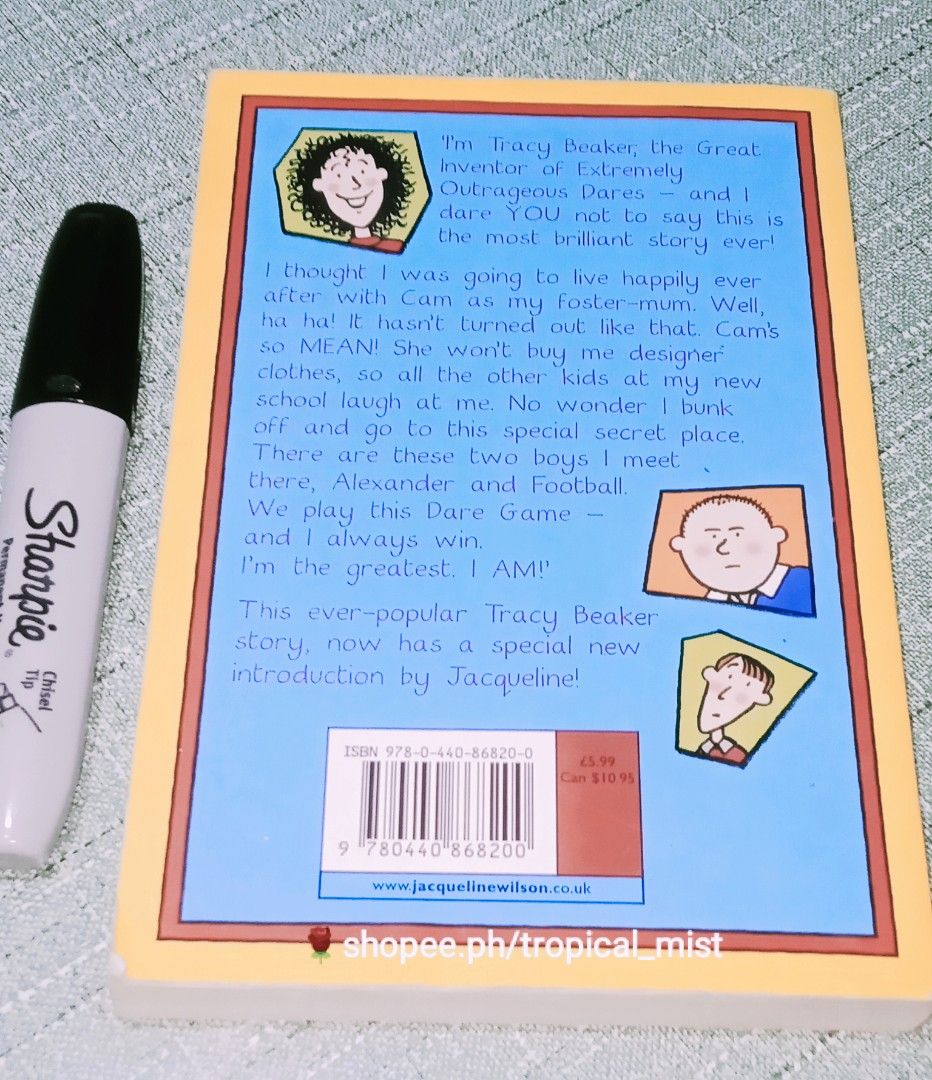 'I'm Tracy Beaker, the Great
Inventor of Extremely
Outrageous Dares – and I
dare YOU not to say this is
the most brilliant story ever!
I thought I was going to live happily ever
after with Cam as my foster-mum. Well,
ha ha! It hasn't turned out like that. Cam's
so MEAN! She won't buy me designer
clothes, so all the other kids at my new
school laugh at me. No wonder I bunk
off and go to this special secret place.
There are these two boys I meet
there, Alexander and Football.
We play this Dare Game –
and I always win.
I'm the greatest. I AM!'
This ever-popular Tracy Beaker
story, now has a special new
introduction by Jacqueline!
ISBN 978-0-440-86820-0
£5.99
Can $10.95
9 780440 868200
www.jacquelinewilson.co.uk
shopee.ph/tropical_mist
Sharpie
Chisel
Tip